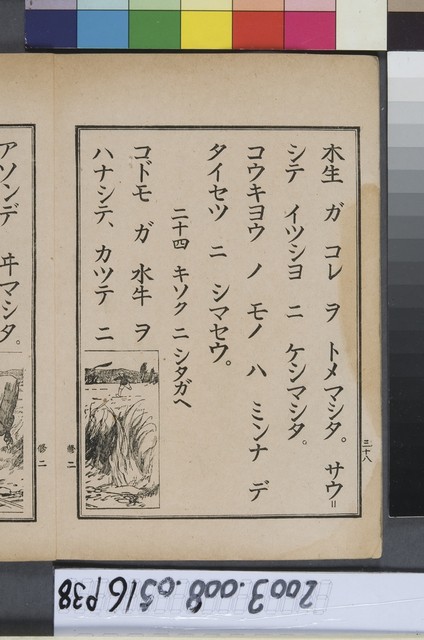 三十八
木生 ガ コレ ヲ トメマシタ。 サウ=
シテ イツシヨ ニ ケシマシタ。
コウキヨウ ノ モノ ハ ミンナ デ
タイセツ ニ シマセウ。
二十四 キソク ニ シタガヘ
コドモ ガ 水牛 ヲ
ハナシテ、カツテ ニ
修二
アソンデ ヰマシタ。
修二
2003.008.0516 P38